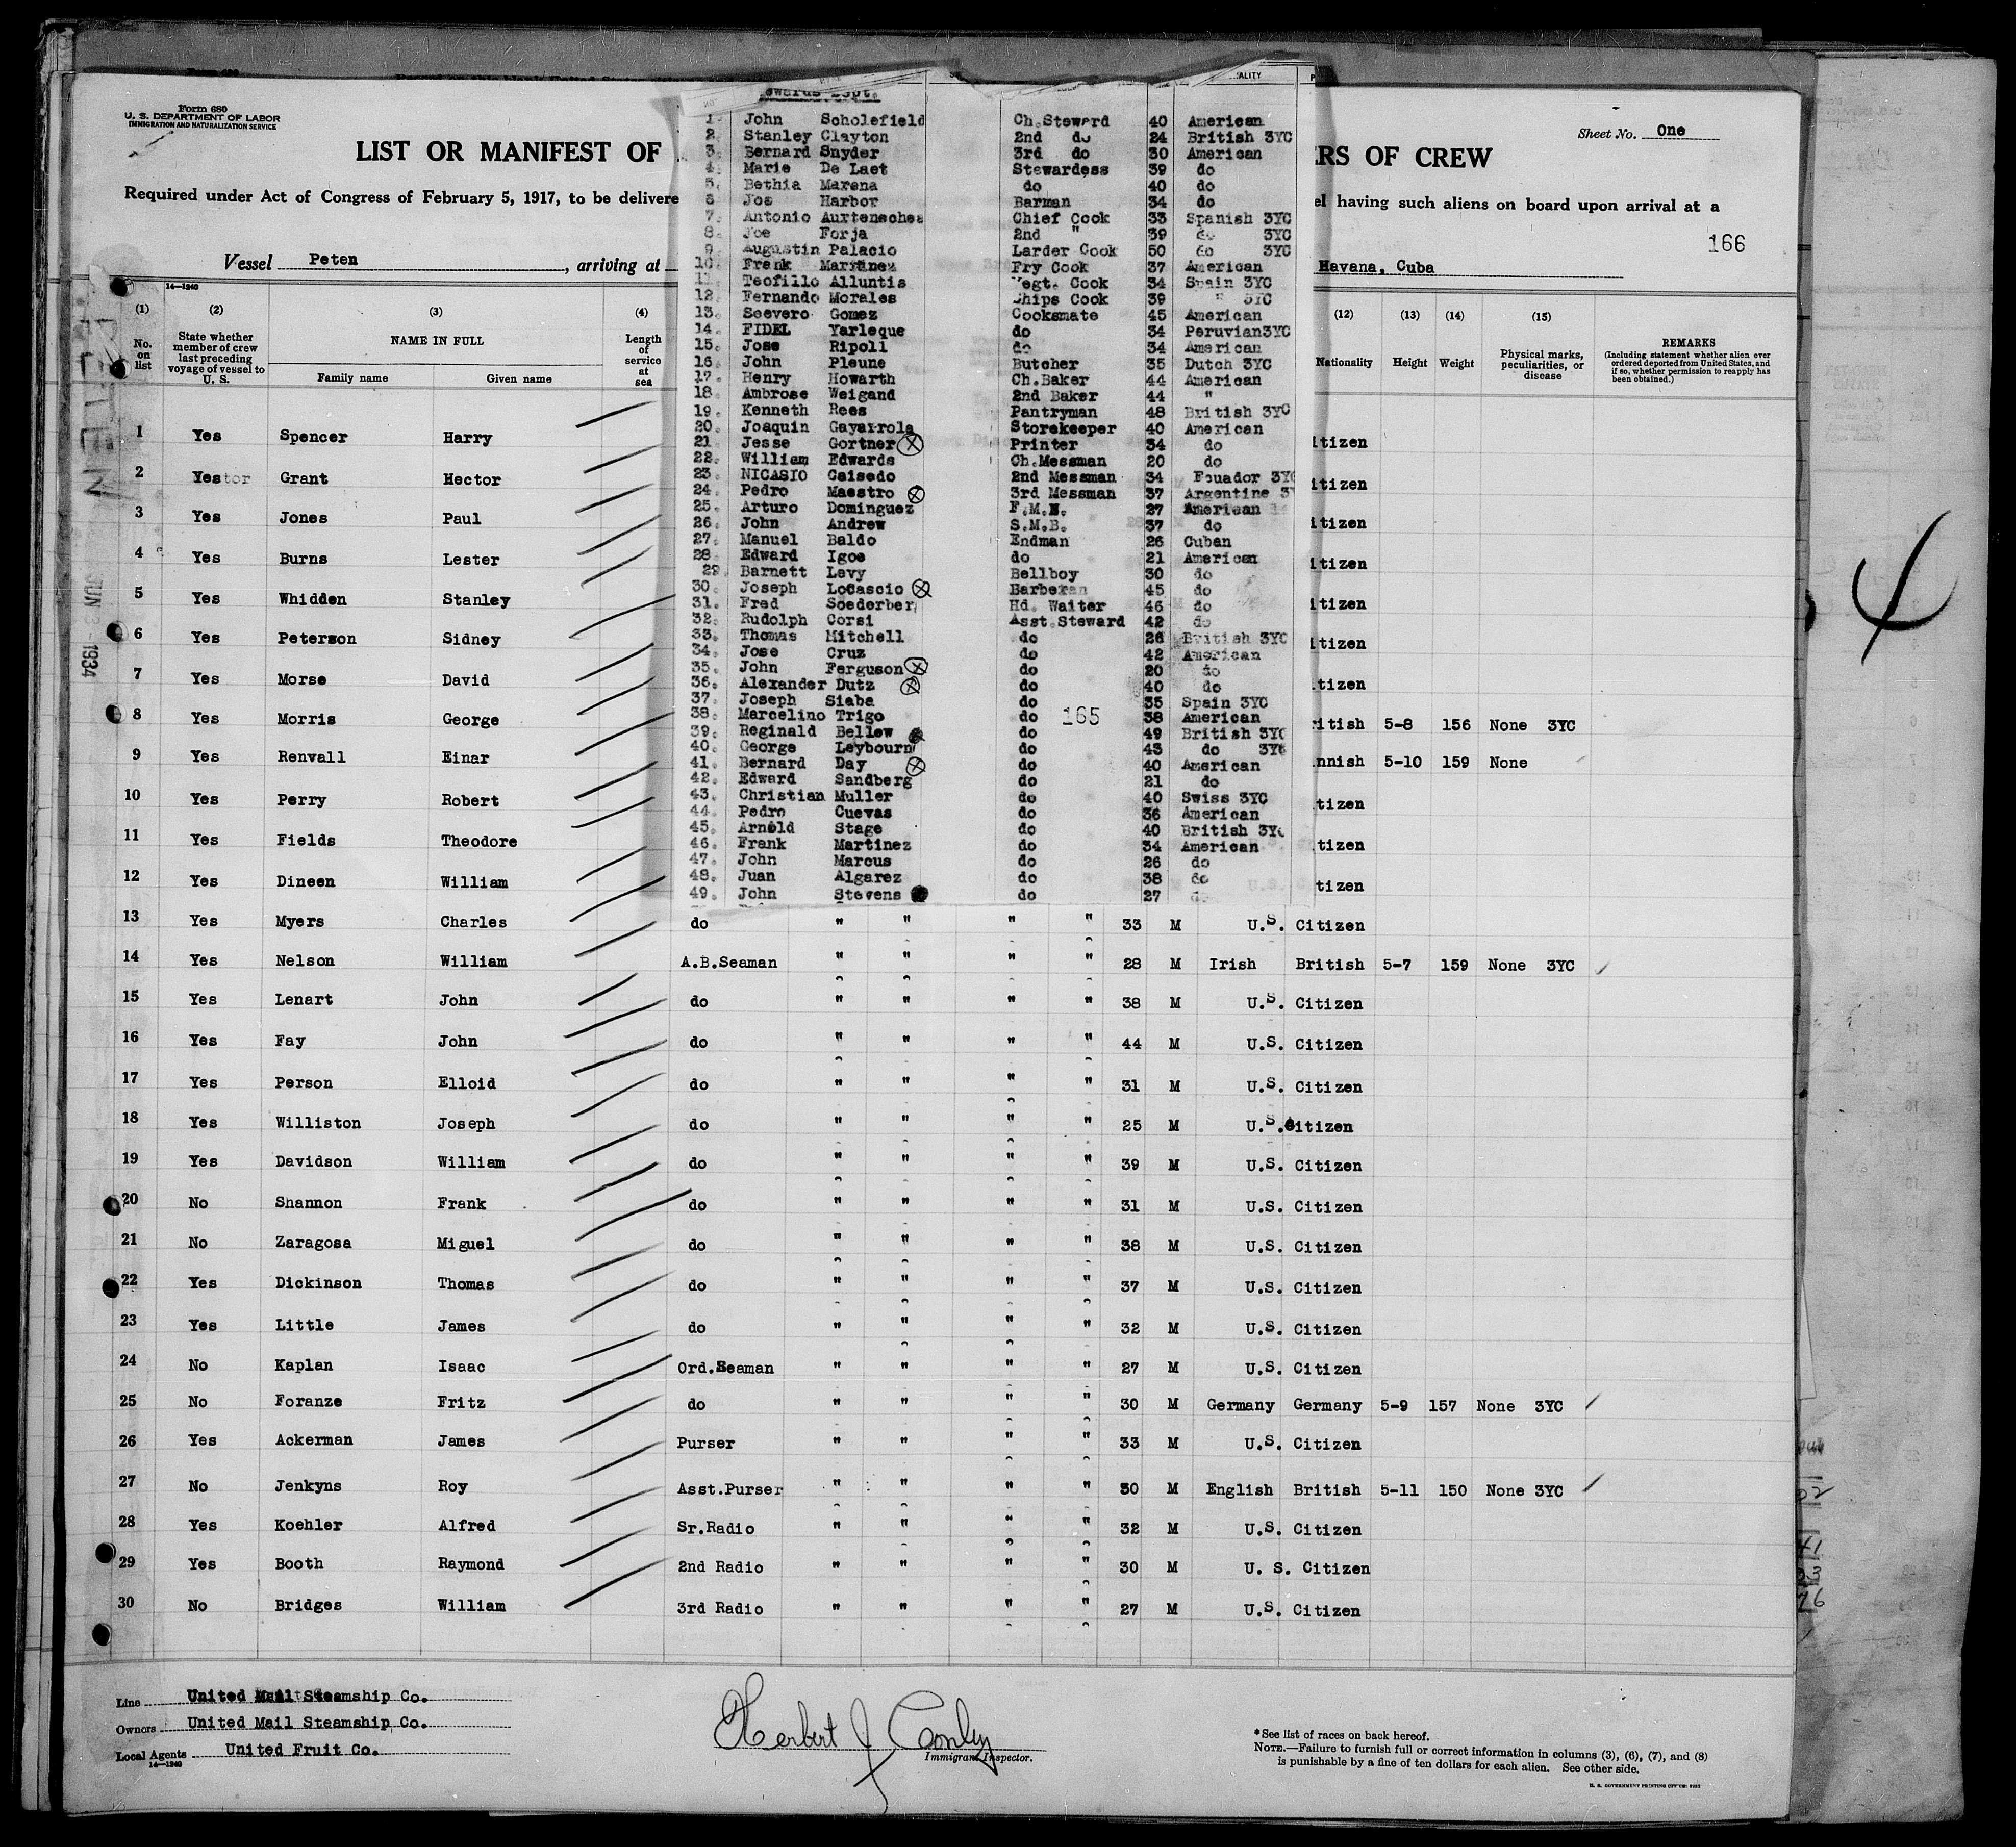 Form 680
U. S. DEPARTMENT OF LABOR
IMMIGRATION AND NATURALIZATION SERVICE
LIST OR MANIFEST OF
ERS OF CREW
Sheet No. One
Required under Act of Congress of February 5, 1917, to be delivere
el having such aliens on board upon arrival at a
166
Vessel Peten, arriving at
Havana, Cuba
ALITY
ewards Dept.
1. John Scholefield Ch.Steward 40 American
2. Stanley Clayton 2nd do 24 British 3YC
3. Bernard Snyder 3rd do 30 American
4. Marie De Laet Stewardess 39 do
5. Bethia Marena do 40 do
6. Joe Harbor Barman 34 do
7. Antonio Auxtenechea Chief Cook 33 Spanish 3YC
8. Joe Forja 2nd " 39 do 3YC
9. Augustin Palacio Larder Cook 50 do 3YC
10. Frank Martinez Fry Cook 37 American
11. Teofillo Alluntis Vegt. Cook 34 Spain 3YC
12. Fernando Morales Ships Cook 39 " 3YC
13. Seevero Gomez Cooksmate 45 American
14. FIDEL Yarleque do 34 Peruvian3YC
15. Jose Ripoll do 34 American
16. John Pleune Butcher 35 Dutch 3YC
17. Henry Howarth Ch.Baker 44 American
18. Ambrose Weigand 2nd Baker 44 "
19. Kenneth Rees Pantryman 48 British 3YC
20. Joaquin Gayarrola Storekeeper 40 American
21. Jesse Gortner Printer 34 do
22. William Edwards Ch.Messman 20 do
23. NICASIO Caisedo 2nd Messman 34 Ecuador 3YC
24. Pedro Maestro 3rd Messman 37 Argentine 3Y
25. Arturo Dominguez F.M.N. 27 American
26. John Andrew S.M.B. 37 do
27. Manuel Baldo Endman 26 Cuban
28. Edward Igoe do 21 American
29. Barnett Levy Bellboy 30 do
30. Joseph LoCascio Barber 45 do
31. Fred Soederber Hd. Waiter 46 do
32. Rudolph Corsi Asst.Steward 42 do
33. Thomas Mitchell do 26 British 3YC
34. Jose Cruz do 42 American
35. John Ferguson do 20 do
36. Alexander Dutz do 40 do
37. Joseph Siaba do 35 Spain 3YC
38. Marcelino Trigo do 165 38 American
39. Reginald Bellew do 49 British 3YC
40. George Leybourn do 43 do 3YC
41. Bernard Day do 40 American
42. Edward Sandberg do 21 do
43. Christian Muller do 40 Swiss 3YC
44. Pedro Cuevas do 36 American
45. Arnold Stage do 40 British 3YC
46. Frank Martinez do 34 American
47. John Marcus do 26 do
48. Juan Algarez do 38 do
49. John Stevens do 27 do
14—1240
(1) (2) (3) (4) (12) (13) (14) (15)
No. on list
State whether member of crew last preceding voyage of vessel to U. S.
NAME IN FULL
Family name Given name
Length of service at sea
Nationality Height Weight
Physical marks, peculiarities, or disease
REMARKS
(Including statement whether alien ever ordered deported from United States, and if so, whether permission to reapply has been obtained.)
JUN 3 - 1934
1 Yes Spencer Harry itizen
2 Yes Grant Hector itizen
3 Yes Jones Paul itizen
4 Yes Burns Lester itizen
5 Yes Whidden Stanley itizen
6 Yes Peterson Sidney itizen
7 Yes Morse David tizen
8 Yes Morris George ritish 5-8 156 None 3YC
9 Yes Renvall Einar nnish 5-10 159 None
10 Yes Perry Robert tizen
11 Yes Fields Theodore tizen
12 Yes Dineen William tizen
13 Yes Myers Charles do " " " " 33 M U.S. Citizen
14 Yes Nelson William A.B.Seaman " " " " 28 M Irish British 5-7 159 None 3YC
15 Yes Lenart John do " " " " 38 M U.S. Citizen
16 Yes Fay John do " " " " 44 M U.S. Citizen
17 Yes Person Elloid do " " " " 31 M U.S. Citizen
18 Yes Williston Joseph do " " " " 25 M U.S.Citizen
19 Yes Davidson William do " " " " 39 M U.S. Citizen
20 No Shannon Frank do " " " " 31 M U.S. Citizen
21 No Zaragosa Miguel do " " " " 38 M U.S. Citizen
22 Yes Dickinson Thomas do " " " " 37 M U.S. Citizen
23 Yes Little James do " " " " 32 M U.S. Citizen
24 No Kaplan Isaac Ord.Seaman " " " " 27 M U.S. Citizen
25 No Foranze Fritz do " " " " 30 M Germany Germany 5-9 157 None 3YC
26 Yes Ackerman James Purser " " " " 33 M U.S. Citizen
27 No Jenkyns Roy Asst.Purser " " " " 30 M English British 5-11 150 None 3YC
28 Yes Koehler Alfred Sr.Radio " " " " 32 M U.S. Citizen
29 Yes Booth Raymond 2nd Radio " " " " 30 M U. S. Citizen
30 No Bridges William 3rd Radio " " " " 27 M U.S. Citizen
Line United Mail Steamship Co.
Owners United Mail Steamship Co.
Local Agents United Fruit Co.
14—1240
Herbert J Conley
Immigrant Inspector.
*See list of races on back hereof.
NOTE.—Failure to furnish full or correct information in columns (3), (6), (7), and (8)
is punishable by a fine of ten dollars for each alien. See other side.
U. S. GOVERNMENT PRINTING OFFICE: 1933